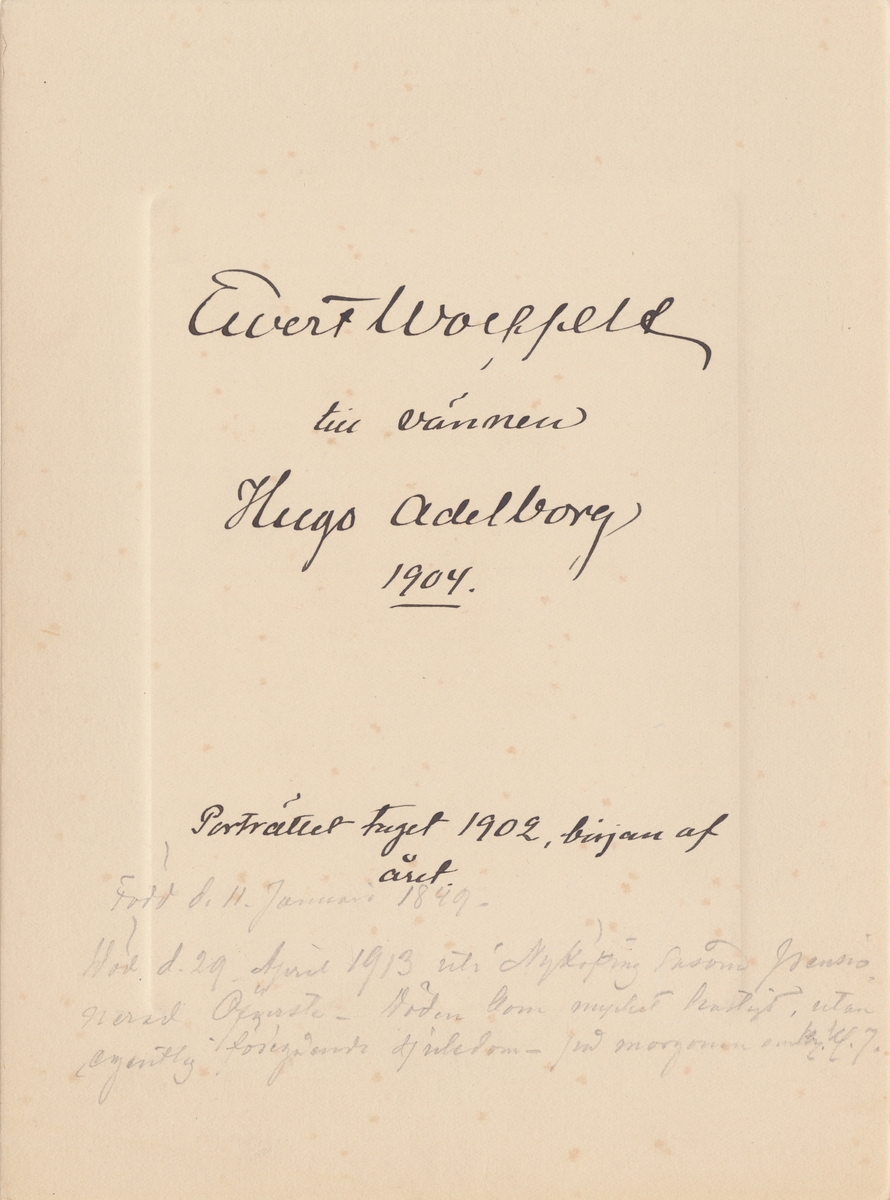 Ewert Wolffelt
till vännen
Hugo Adelborg
1904.
Porträttet taget 1902, början af
året.
Född d. 11. Januari 1849.
Död. d. 29. April 1913 uti Nyköping såsom pensio-
nerad Öfverste - Döden kom mycket hastigt, utan
egentlig föregående sjukdom - på morgonen